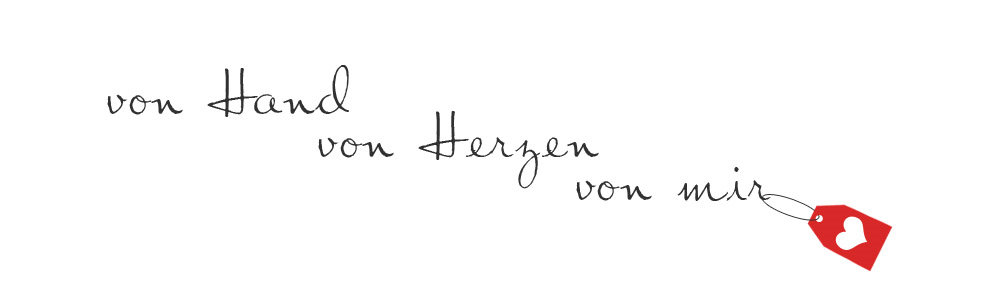 von Hand
von Herzen
von mir